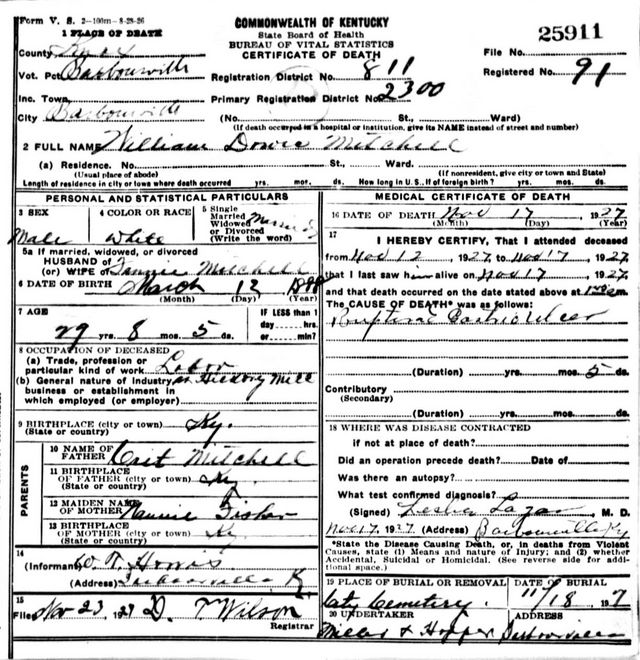 Form V. S. 2-100m-8-28-26
COMMONWEALTH OF KENTUCKY
State Board of Health
BUREAU OF VITAL STATISTICS
CERTIFICATE OF DEATH
25911
1 PLACE OF DEATH
County Knox
File No.
Vot. Pct Barbourville
Registration District No. 811
Registered No. 91
Inc. Town
Primary Registration District No. 2300
City Barbourville (No. St., Ward)
(If death occurred in a hospital or institution, give its NAME instead of street and number)
2 FULL NAME William Mitchell
(a) Residence. No. St., Ward.
(Usual place of abode) (If nonresident, give city or town and State)
Length of residence in city or town where death occurred yrs. mos. ds. How long in U. S., if of foreign birth? yrs. mos. ds.
PERSONAL AND STATISTICAL PARTICULARS
3 SEX
Male
4 COLOR OR RACE
White
5 Single
Married
Widowed
or Divorced
(Write the word)
Married
5a If married, widowed, or divorced
HUSBAND of
(or) WIFE of Mitchell
6 DATE OF BIRTH March 12
(Month) (Day) (Year)
7 AGE
29 yrs. 8 mos. 5 ds.
IF LESS than 1
day, hrs.
or min?
8 OCCUPATION OF DECEASED
(a) Trade, profession or
particular kind of work Labor
(b) General nature of Industry,
business or establishment in
which employed (or employer)
Hickory Mill
9 BIRTHPLACE (city or town) Ky.
(State or country)
PARENTS
10 NAME OF
FATHER Mitchell
11 BIRTHPLACE
OF FATHER (city or town) Ky
(State or country)
12 MAIDEN NAME
OF MOTHER
13 BIRTHPLACE
OF MOTHER (city or town) Ky
(State or country)
14
(Informant
(Address) Ky
15
Filed Nov-23, 1927 D. T Wilson
Registrar
MEDICAL CERTIFICATE OF DEATH
16 DATE OF DEATH Nov 17, 1927
(Month) (Day) (Year)
17
I HEREBY CERTIFY, That I attended deceased
from Nov 12, 1927 to Nov 17, 1927
that I last saw him alive on Nov 17, 1927
and that death occurred on the date stated above at m.
The CAUSE OF DEATH* was as follows:
Ruptured Gastric Ulcer
(Duration) yrs. mos. 5 ds.
Contributory
(Secondary)
(Duration) yrs. mos. ds.
18 WHERE WAS DISEASE CONTRACTED
if not at place of death?
Did an operation precede death? Date of
Was there an autopsy?
What test confirmed diagnosis?
(Signed) M. D.
Nov 17, 1927 (Address) Barbourville Ky
*State the Disease Causing Death, or, in deaths from Violent
Causes, state (1) Means and nature of Injury; and (2) whether
Accidental, Suicidal or Homicidal. (See reverse side for addi-
tional space.)
19 PLACE OF BURIAL OR REMOVAL
City Cemetery
DATE OF BURIAL
11/18 1927
20 UNDERTAKER
Hopper
ADDRESS
Barbourville